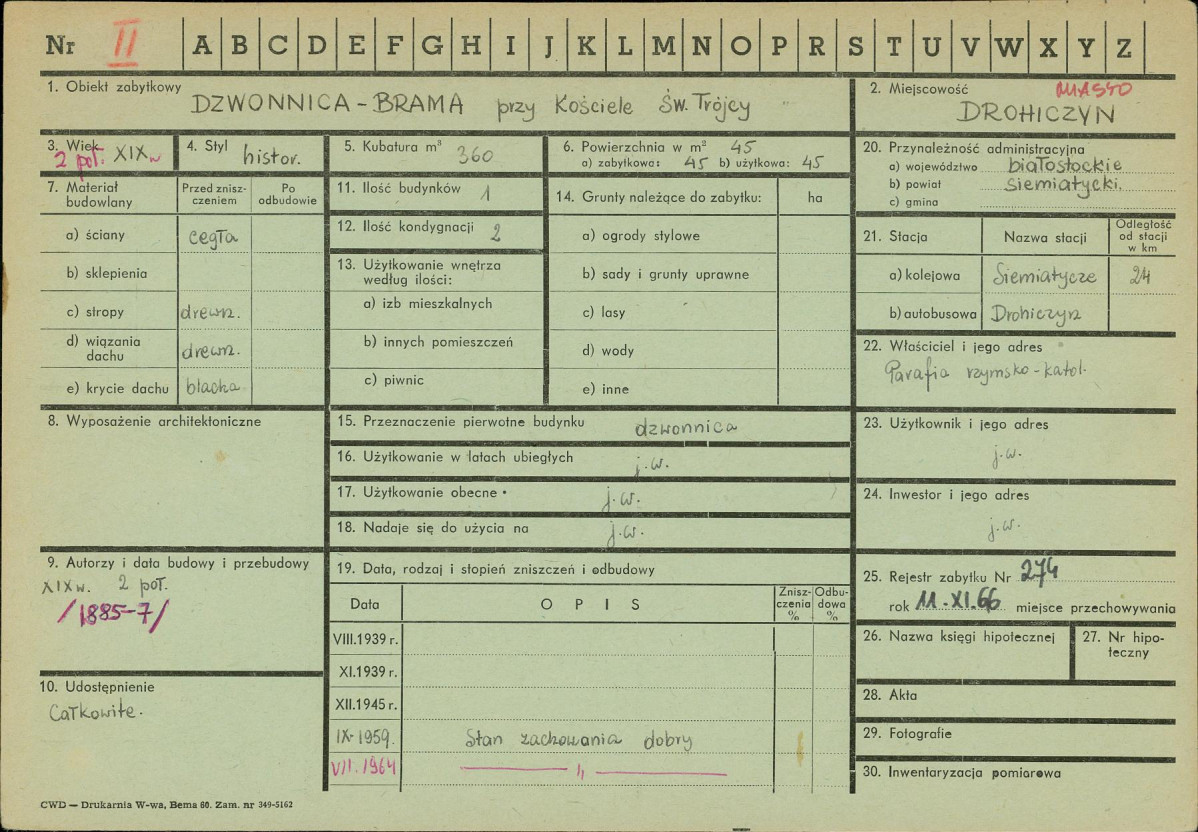 Nr II A B C D E F G H I J K L M N O P R S T U V W X Y Z
1. Obiekt zabytkowy
DZWONNICA - BRAMA przy Kościele Św. Trójcy
2. Miejscowość MIASTO
DROHICZYN
3. Wiek
2 poł. XIX w
4. Styl
histor.
5. Kubatura m³ 360
6. Powierzchnia w m² 45
a) zabytkowa: 45 b) użytkowa: 45
20. Przynależność administracyjna
a) województwo białostockie
b) powiat siemiatycki.
c) gmina
7. Materiał budowlany
Przed znisz-
czeniem
Po
odbudowie
a) ściany cegła
b) sklepienia
c) stropy drewn.
d) wiązania
dachu drewn.
e) krycie dachu blacha
11. Ilość budynków 1
12. Ilość kondygnacji 2
13. Użytkowanie wnętrza
według ilości:
a) izb mieszkalnych
b) innych pomieszczeń
c) piwnic
14. Grunty należące do zabytku: ha
a) ogrody stylowe
b) sady i grunty uprawne
c) lasy
d) wody
e) inne
21. Stacja Nazwa stacji
Odległość
od stacji
w km
a) kolejowa Siemiatycze 24
b) autobusowa Drohiczyn
22. Właściciel i jego adres
Parafia rzymsko-katol.
8. Wyposażenie architektoniczne
15. Przeznaczenie pierwotne budynku dzwonnica
16. Użytkowanie w latach ubiegłych j.w.
17. Użytkowanie obecne j.w.
18. Nadaje się do użycia na j.w.
23. Użytkownik i jego adres
j.w.
24. Inwestor i jego adres
j.w.
9. Autorzy i data budowy i przebudowy
XIX w. 2 poł.
/1885-7/
10. Udostępnienie
Całkowite.
19. Data, rodzaj i stopień zniszczeń i odbudowy
Data OPIS
Znisz-
czenia
%
Odbu-
dowa
%
VIII.1939 r.
XI.1939 r.
XII.1945 r.
IX-1959. Stan zachowania dobry
VII.1964 — „ —
25. Rejestr zabytku Nr 274
rok 11.XI.66 miejsce przechowywania
26. Nazwa księgi hipotecznej
27. Nr hipo-
teczny
28. Akta
29. Fotografie
30. Inwentaryzacja pomiarowa
CWD — Drukarnia W-wa, Bema 60. Zam. nr 349-5162